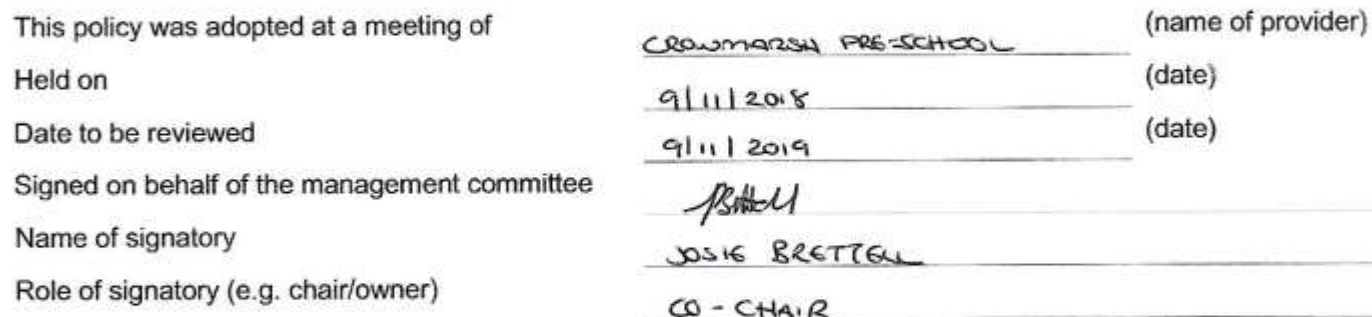 This policy was adopted at a meeting of CROWMARSH PRE-SCHOOL (name of provider)
Held on 9/11/2018 (date)
Date to be reviewed 9/11/2019 (date)
Signed on behalf of the management committee
Name of signatory JOSIE BRETTELL
Role of signatory (e.g. chair/owner) CO-CHAIR